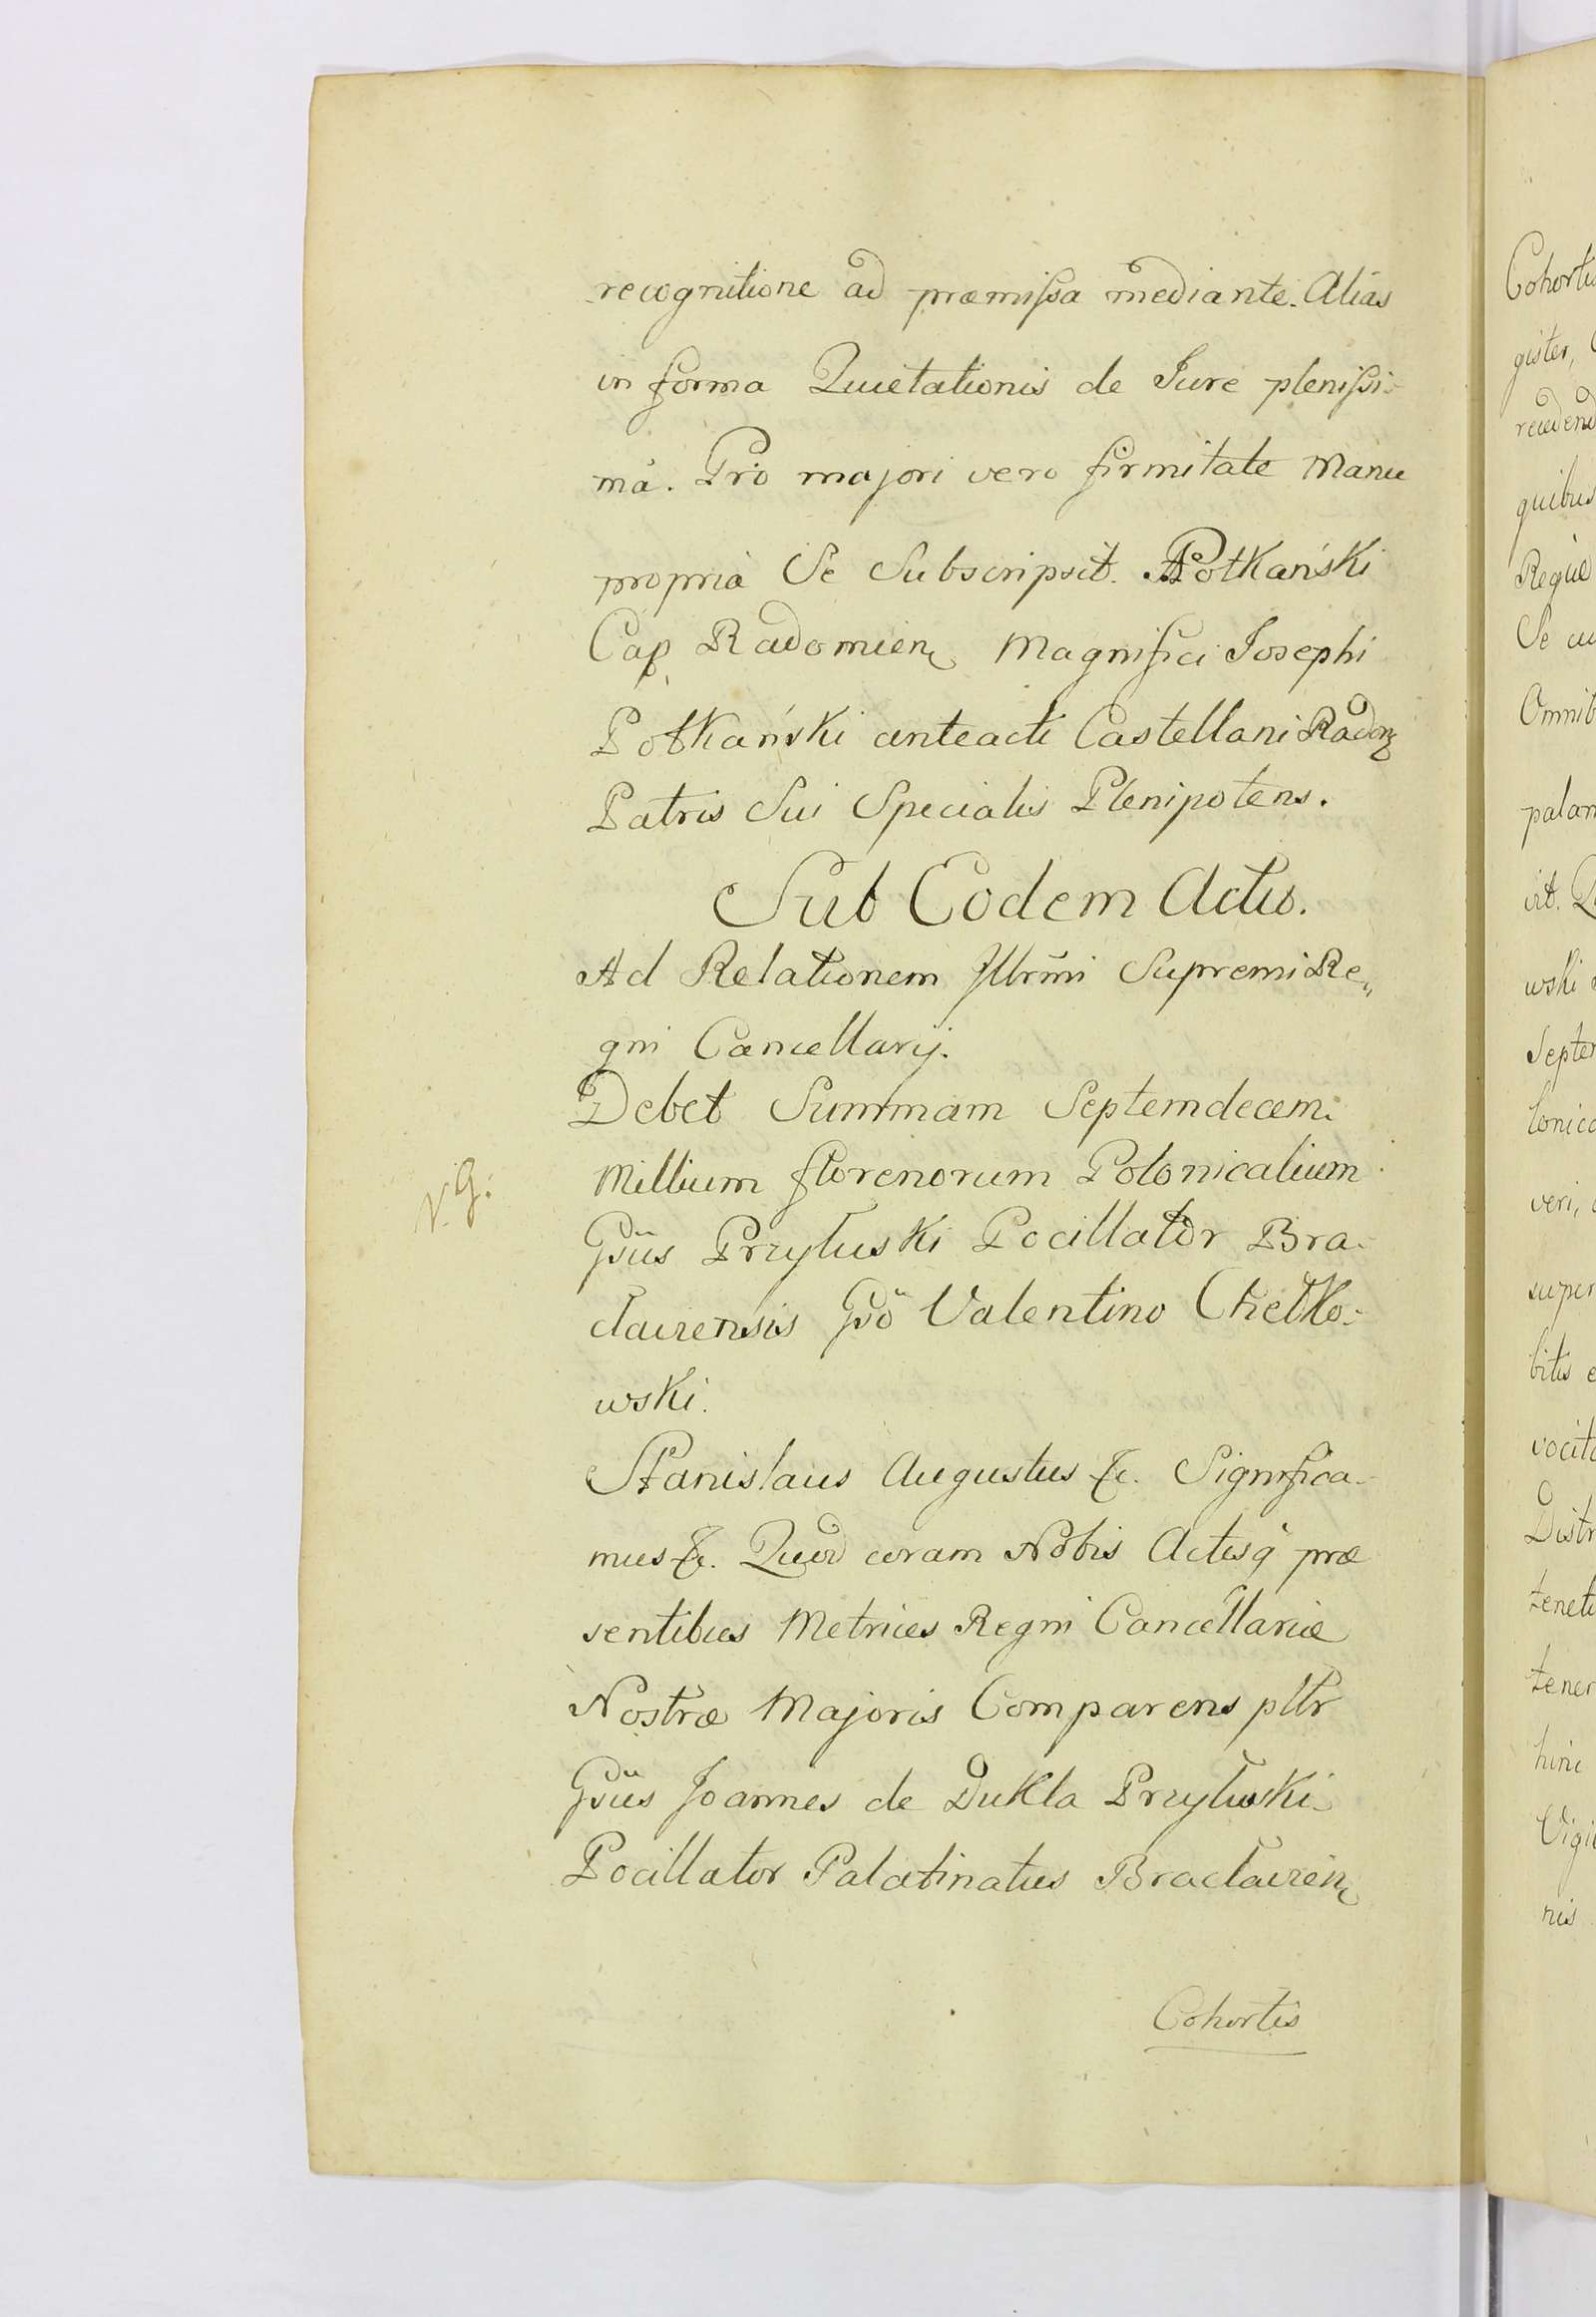 recognitione ad præmissa mediante. Alias
in forma Quietationis de Jure plenissi-
mâ. Pro majori vero firmitate Manu
propriâ Se Subscripsit. APotkański
Cap. Radomien. Magnifici Josephi
Potkański anteacti Castellani Radom.
Patris Sui Specialis Plenipotens.
Sub Eodem Actu.
Ad Relationem Illrmi Supremi Re„
gni Cancellarij.
Debet Summam Septemdecem
Millium florenorum Polonicalium
N. G:
Gsus Przyłuski Pocillator Bra-
claviensis Gso Valentino Chełko-
wski.
Stanislaus Augustus &c. Significa-
mus &c. Quod coram Nobis Actisq præ
sentibus Metrices Regni Cancellariæ
Nostræ Majoris Comparens pltr
Gsus Joannes de Dukla Przyłuski
Pocillator Palatinatus Braclavien.
Cohortis
Cohortis
gister,
quibus
Se
palam
wski
super
bitis
hinc
nis